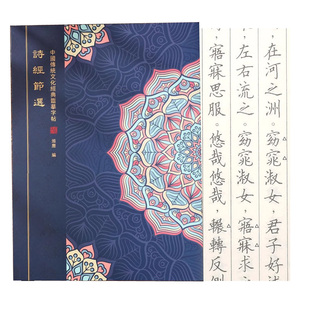 中國傳統文化經典臨摹字帖
詩經節選
編
，在河之洲。窈窕淑女，君子好
，左右流之。窈窕淑女，寤寐求
，寤寐思服。悠哉悠哉，輾轉反側